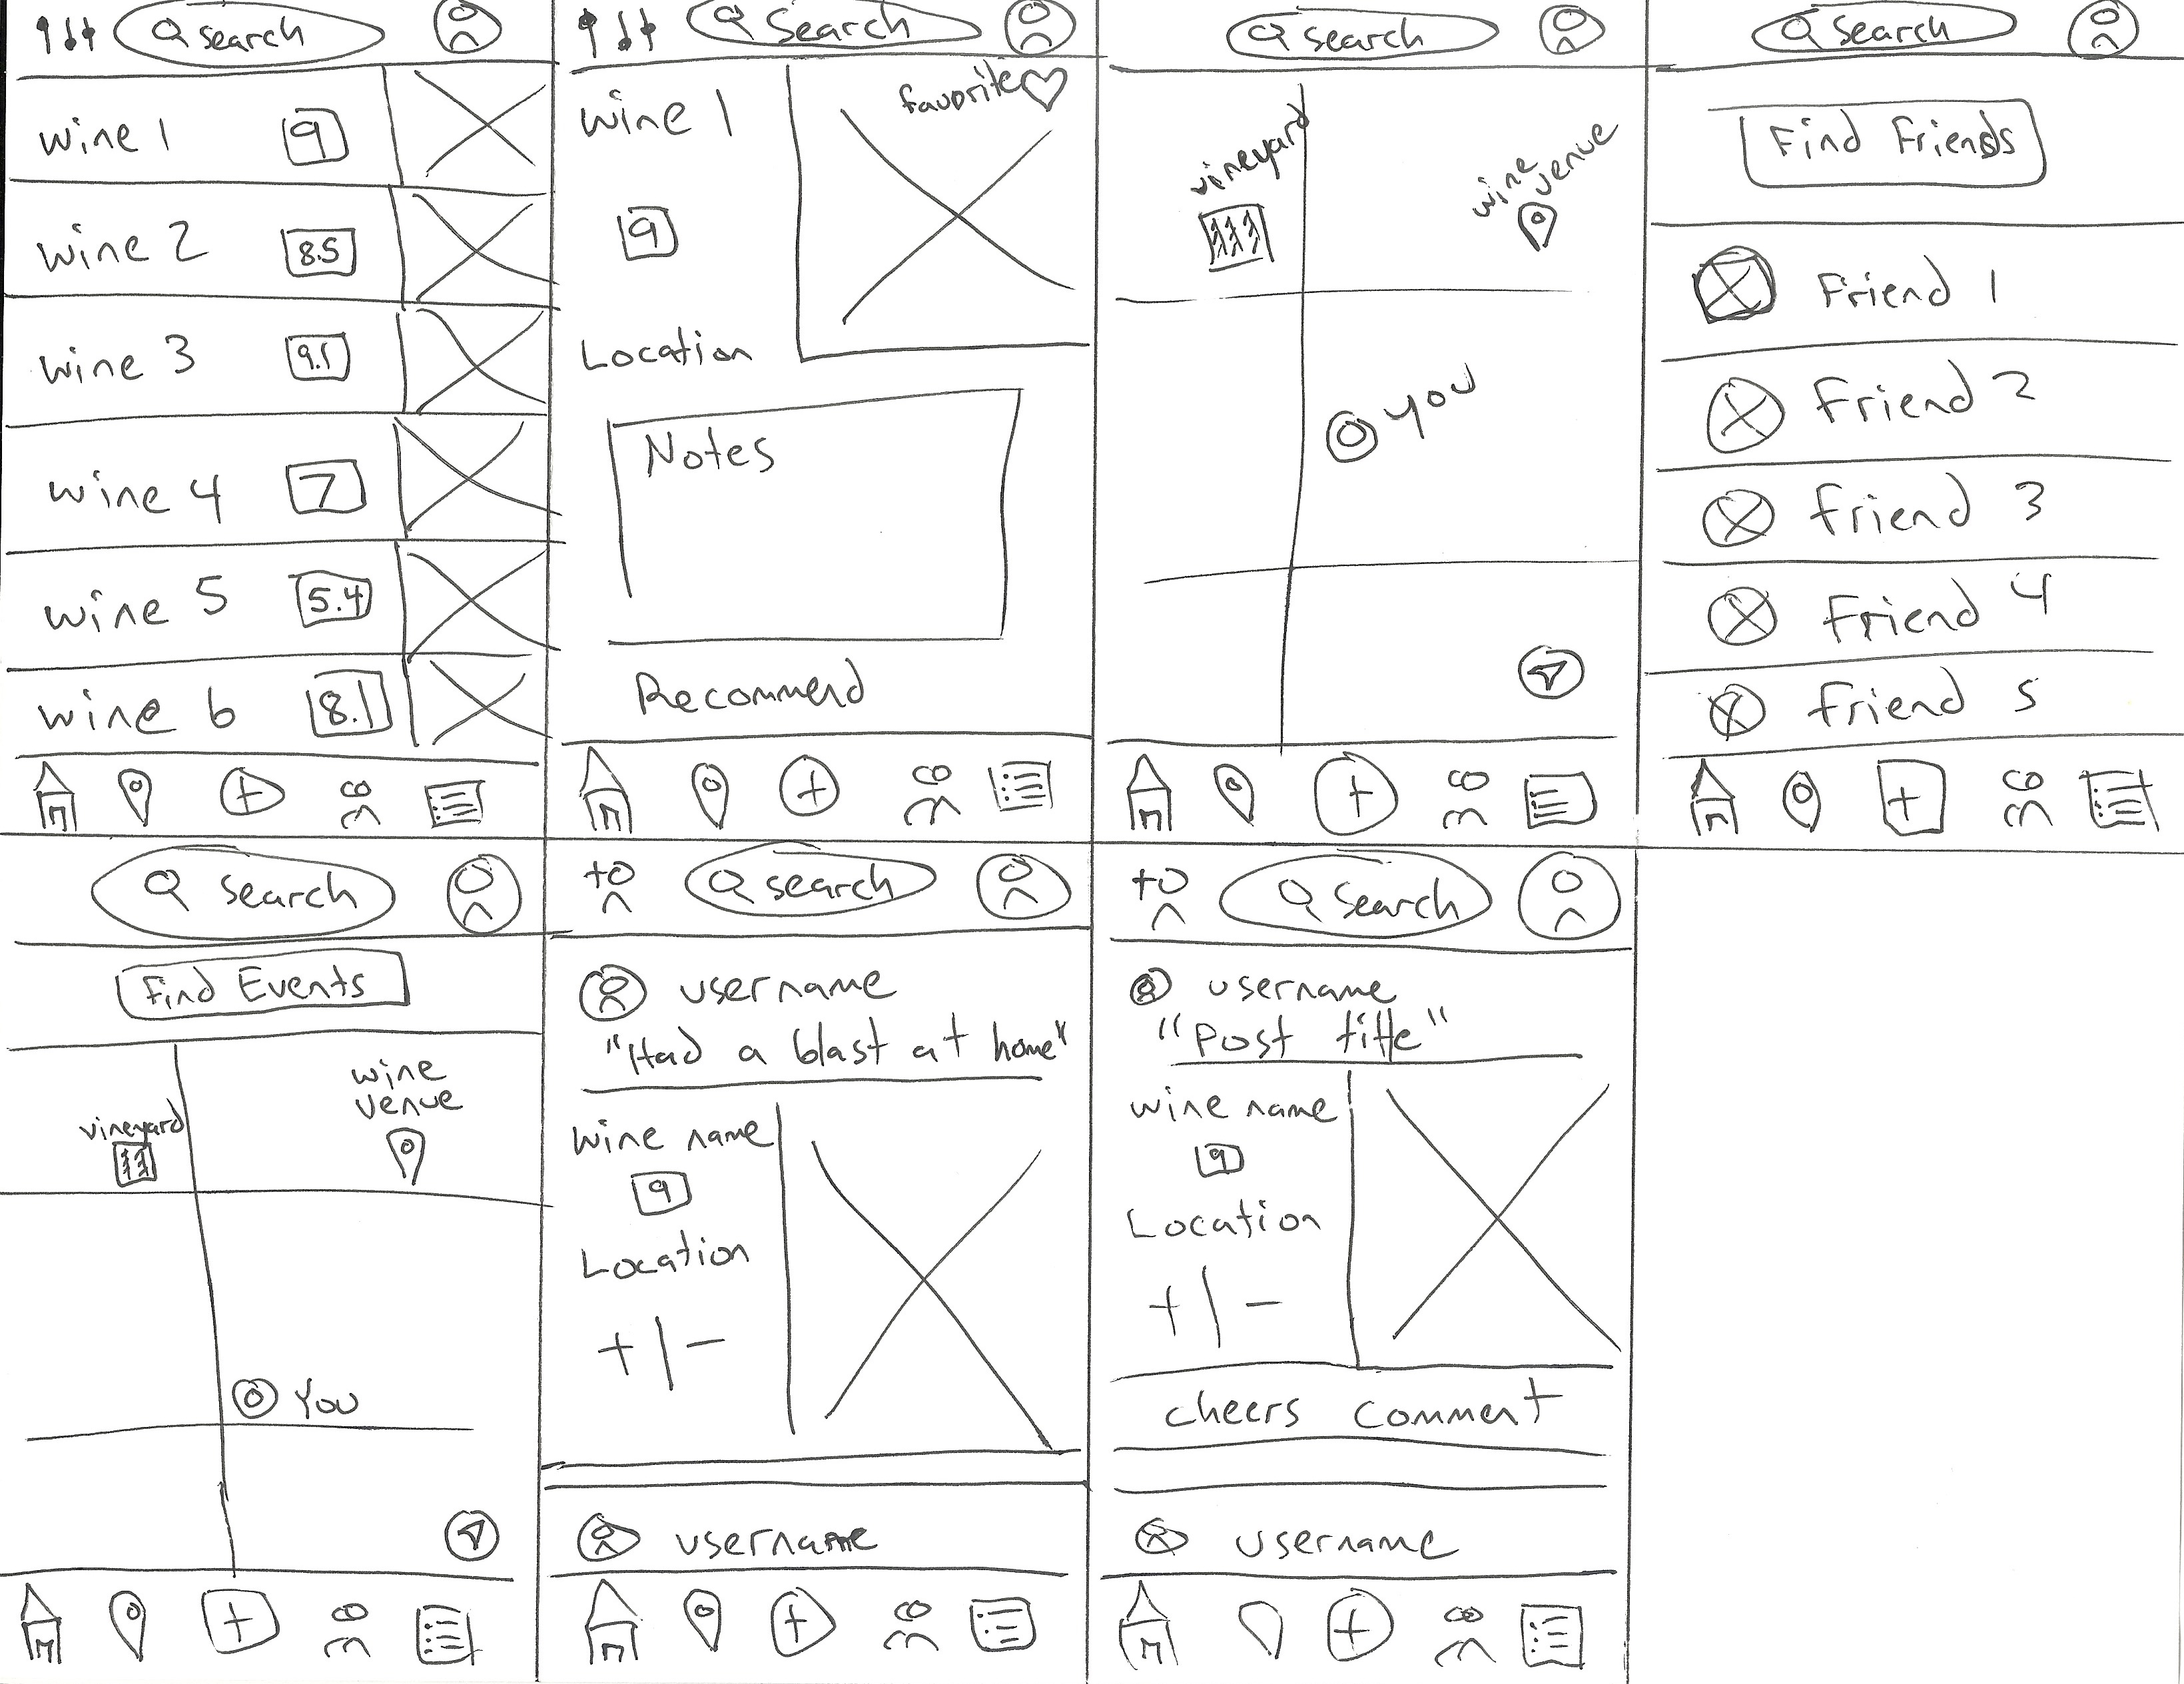 search
wine 1 9
wine 2 8.5
wine 3 9.1
wine 4 7
wine 5 5.4
wine 6 8.1
search
wine 1
favorite
9
Location
Notes
Recommend
search
vineyard
wine
venue
you
search
Find Friends
Friend 1
Friend 2
Friend 3
Friend 4
Friend 5
search
Find Events
wine
venue
vineyard
You
search
username
"Had a blast at home"
wine name
9
Location
+ | -
username
search
username
"Post title"
wine name
9
Location
+ | -
cheers comment
username